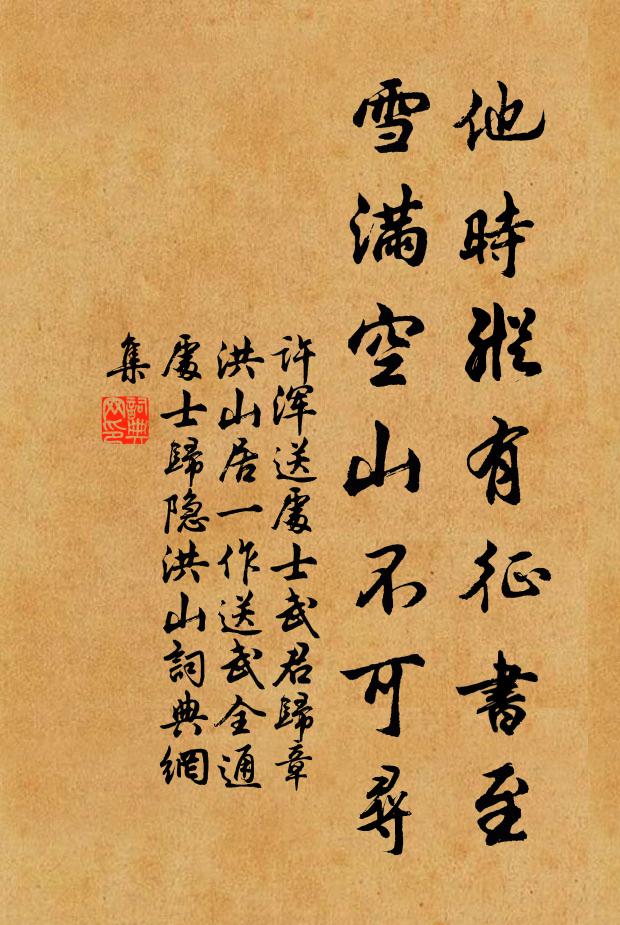 他時縱有征書至
雪滿空山不可尋
許渾送處士武君歸章
洪山居一作送武全通
處士歸隐洪山詞典網
集
詞典
网印